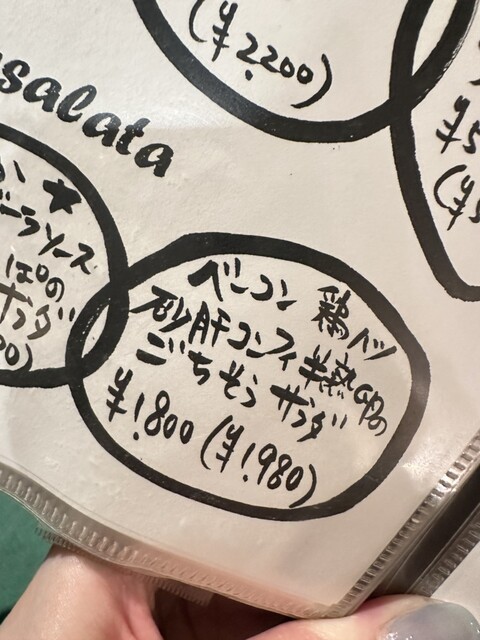 (¥2.200)
salata
ーラソース
ぱの
サラダ
ベーコン 鶏ハツ
砂肝コンフィ 半熟卵の
ごちそう サラダ
¥1.800 (¥1.980)
¥5
(¥5